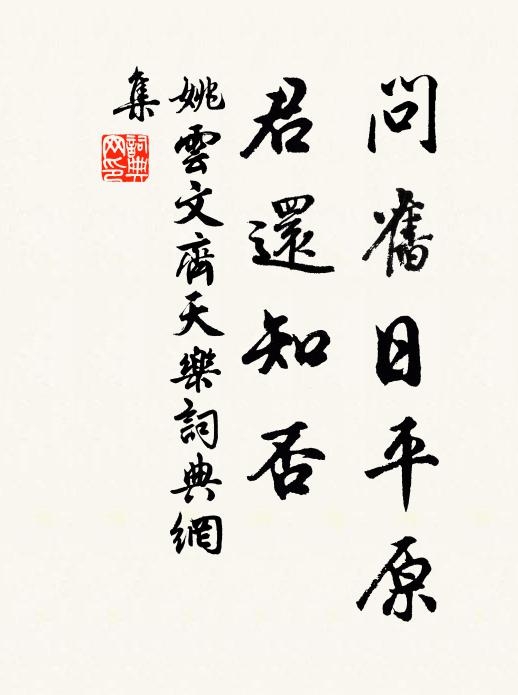 問舊日平原
君還知否
姚雲文齊天樂詞典網
集
詞典
网印